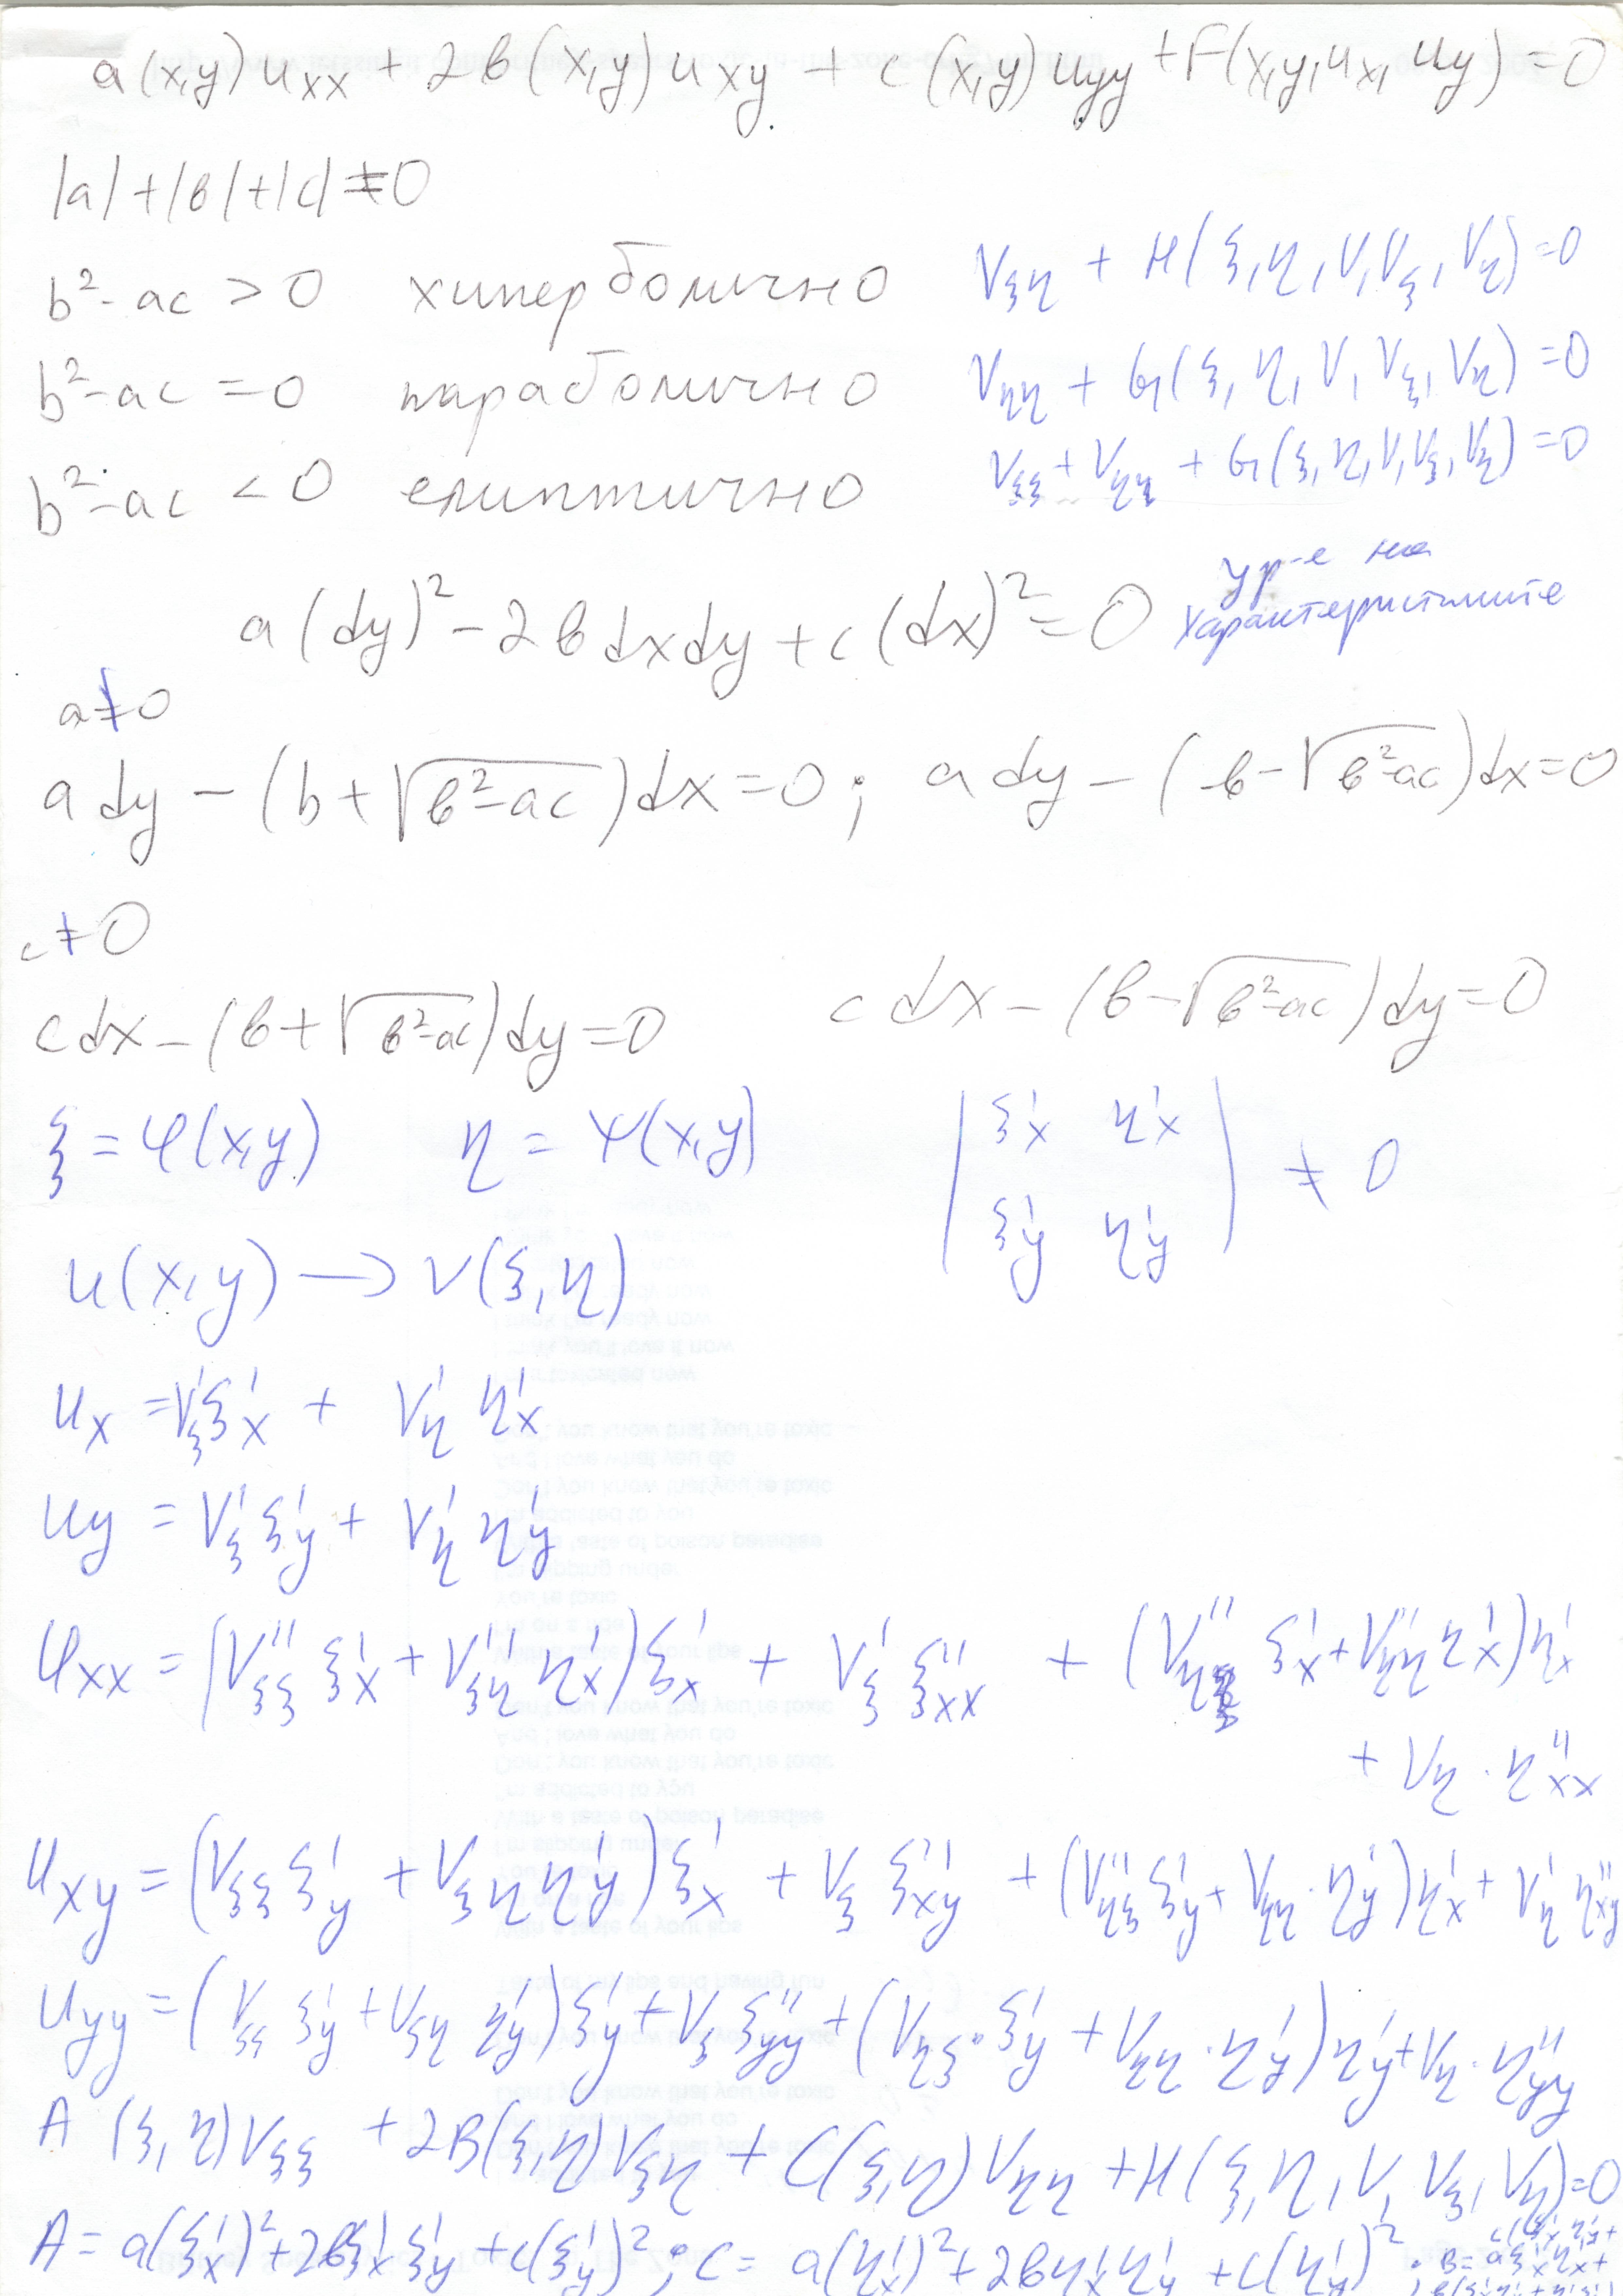 a(x,y)uxx + 2b(x,y)uxy + c(x,y)uyy + F(x,y,ux,uy) = 0
|a|+|b|+|c| ≠ 0
b²-ac > 0 хиперболично Vξη + H(ξ,η,V,Vξ,Vη) = 0
b²-ac = 0 параболично Vηη + G(ξ,η,V,Vξ,Vη) = 0
b²-ac < 0 елиптично Vξξ + Vηη + G(ξ,η,V,Vξ,Vξ) = 0
a(dy)² - 2b dxdy + c(dx)² = 0 ур-е на
характеристиките
a≠0
a dy - (b+√b²-ac)dx = 0; a dy - (b-√b²-ac)dx = 0
c≠0
c dx - (b+√b²-ac)dy = 0 c dx - (b-√b²-ac)dy = 0
ξ = φ(x,y) η = ψ(x,y) | ξ'x η'x
ξ'y η'y | ≠ 0
u(x,y) → v(ξ,η)
ux = V'ξ ξ'x + V'η η'x
uy = V'ξ ξ'y + V'η η'y
Uxx = (V''ξξ ξ'x + V''ξη η'x)ξ'x + V'ξ ξ''xx + (V''ηξ ξ'x + V''ηη η'x)η'x
+ Vη · η''xx
Uxy = (Vξξ ξ'y + Vξη η'y)ξ'x + Vξ ξ''xy + (V''ηξ ξ'y + Vηη · η'y)η'x + V'η η''xy
Uyy = (Vξξ ξ'y + Vξη η'y)ξ'y + Vξ ξ''yy + (Vηξ · ξ'y + Vηη · η'y)η'y + Vη · η''yy
A(ξ,η)Vξξ + 2B(ξ,η)Vξη + C(ξ,η)Vηη + H(ξ,η,V,Vξ,Vη) = 0
A = a(ξ'x)² + 2bξ'x ξ'y + c(ξ'y)²; C = a(η'x)² + 2bη'x η'y + c(η'y)²
B = aξ'x η'x +